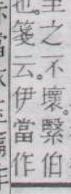 之不壞緊伯
也。箋云。伊當作